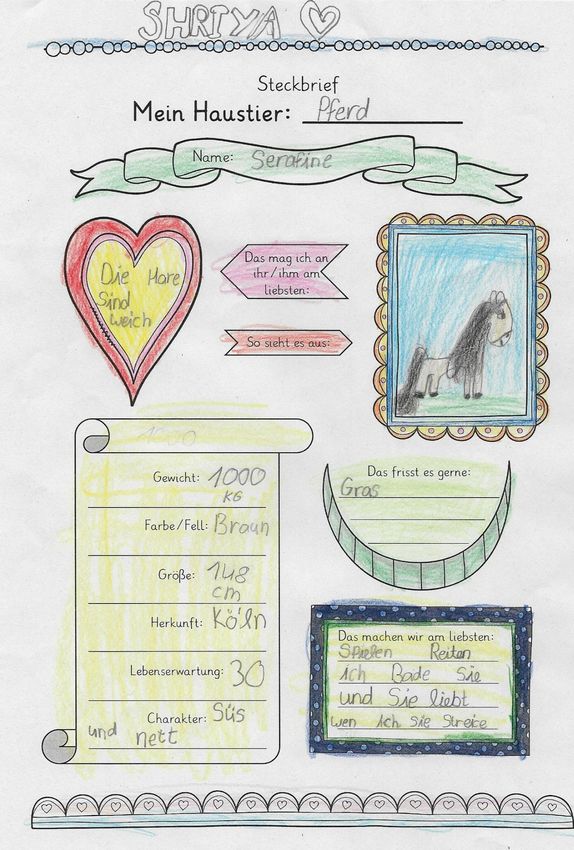 SHRIYA
Steckbrief
Mein Haustier: Pferd
Name: Serafine
Das mag ich an
ihr/ihm am
liebsten:
Die Hare
Sind
weich
So sieht es aus:
1000
Gewicht: 1000
KG
Farbe/Fell: Braun
Größe: 148
cm
Herkunft: Köln
Lebenserwartung: 30
Charakter: Süs
und nett
Das frisst es gerne:
Gras
Das machen wir am liebsten:
Spielen Reiten
ich Bade Sie
und Sie liebt
wen ich sie Streice